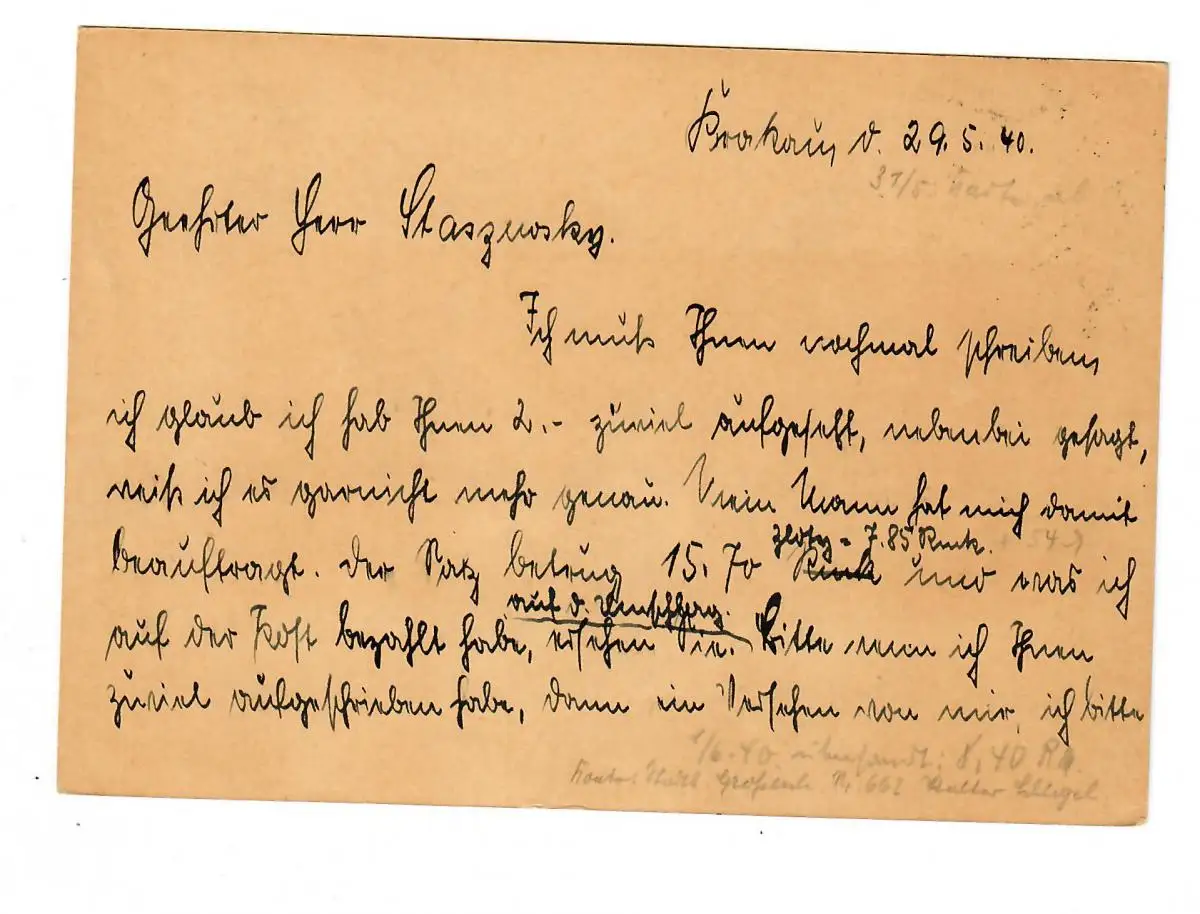 Krakau, d. 29.5.40.
31/5. Karte ab
Geehrter Herr Stasznosky.
Ich muß Ihnen nochmal schreiben,
ich glaub ich hab Ihnen 2.- zuviel aufgesetzt, nebenbei gesagt,
weiß ich es garnicht mehr genau. Mein Mann hat mich damit
Zloty = 7.85 Rmk.
beauftragt. Der Satz betrug 15.70 Rmk und was ich
auf d. Umschlag.
auf der Post bezahlt habe, ersehen Sie. Bitte wenn ich Ihnen
zuviel aufgeschrieben habe, dann ein Versehen von mir, ich bitte
1/6.40 übersandt: 8,40 RM.
Konto: Nr. 662 Walter Schlegel